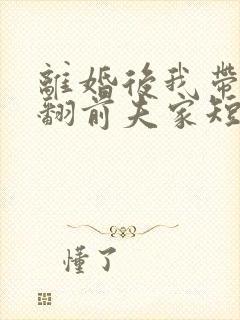 離婚後我帶
翻前夫家短
懂了